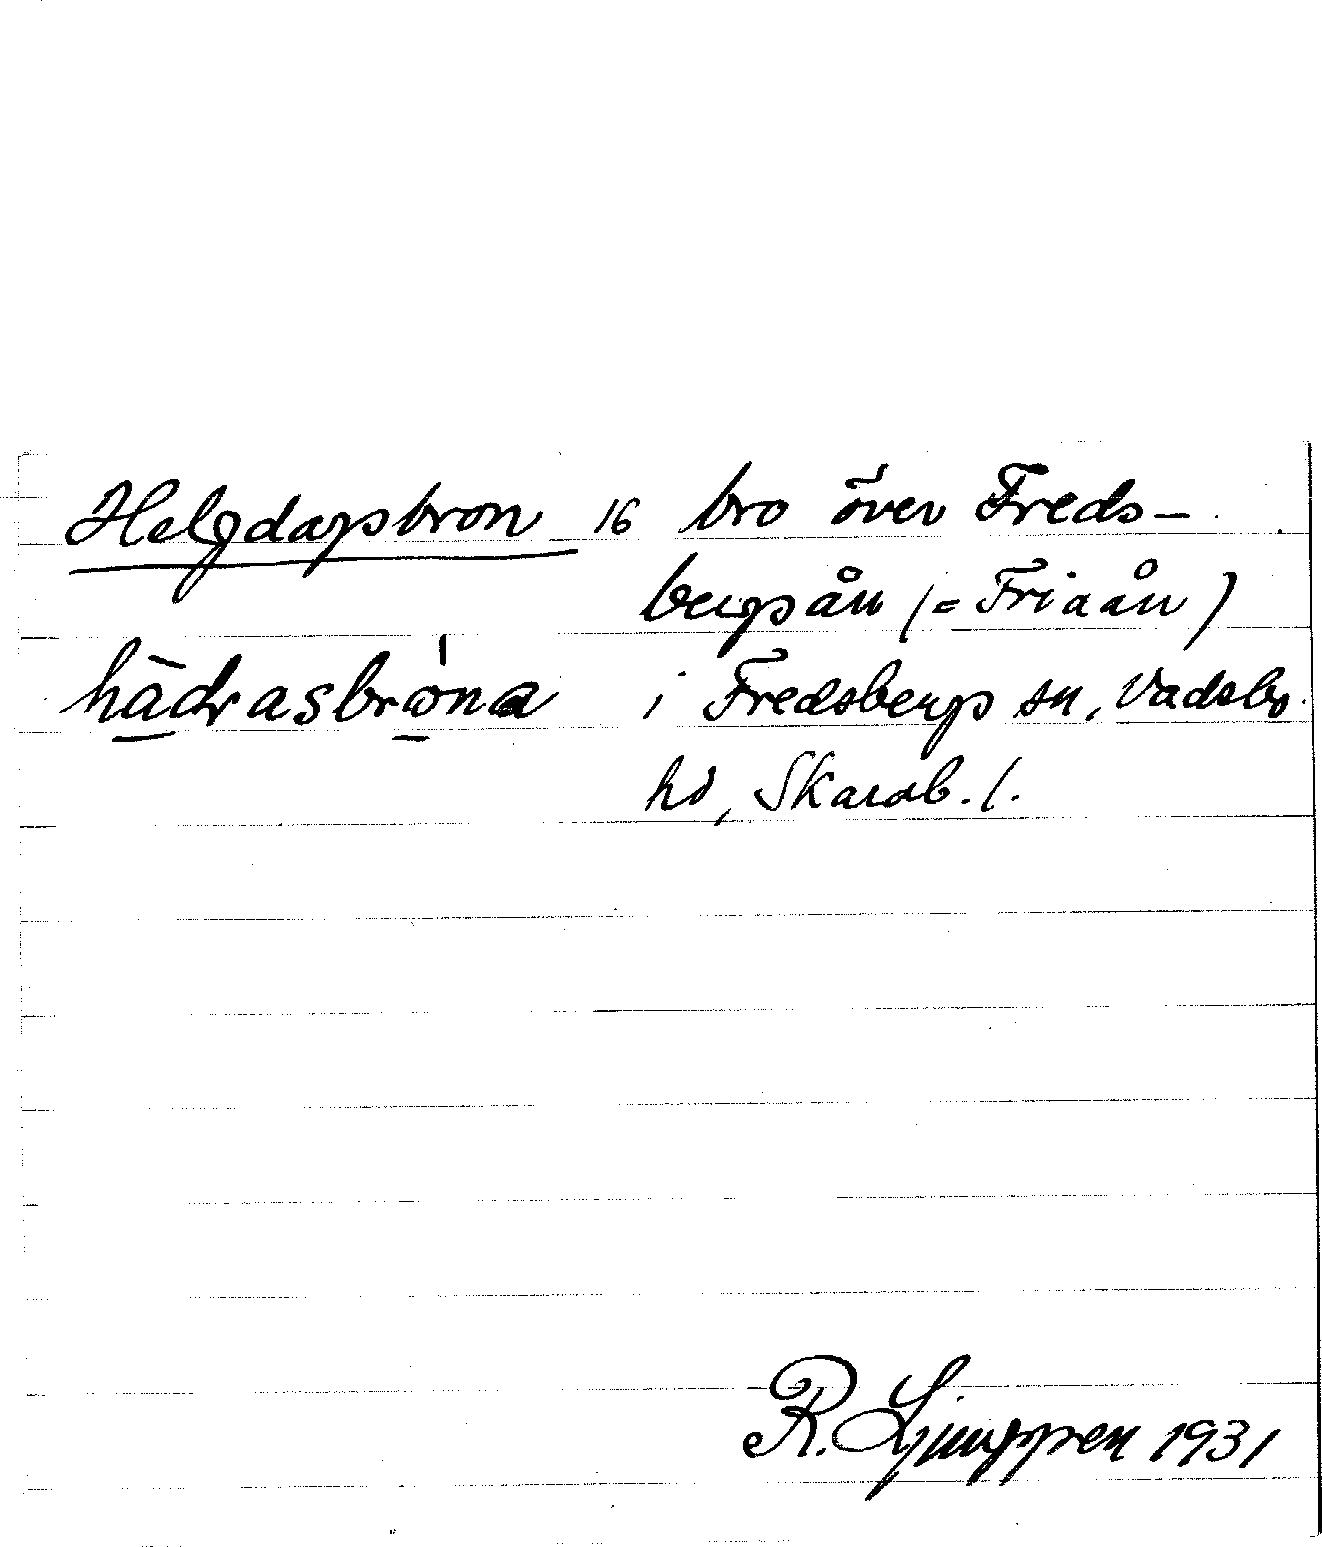 Helgdagsbron 16 bro över Freds-
bergsån (= Friaån)
hädrasbrona i Fredsbergs sn, Vadsbo
hd, Skarab. l.
R. Ljunggren 1931